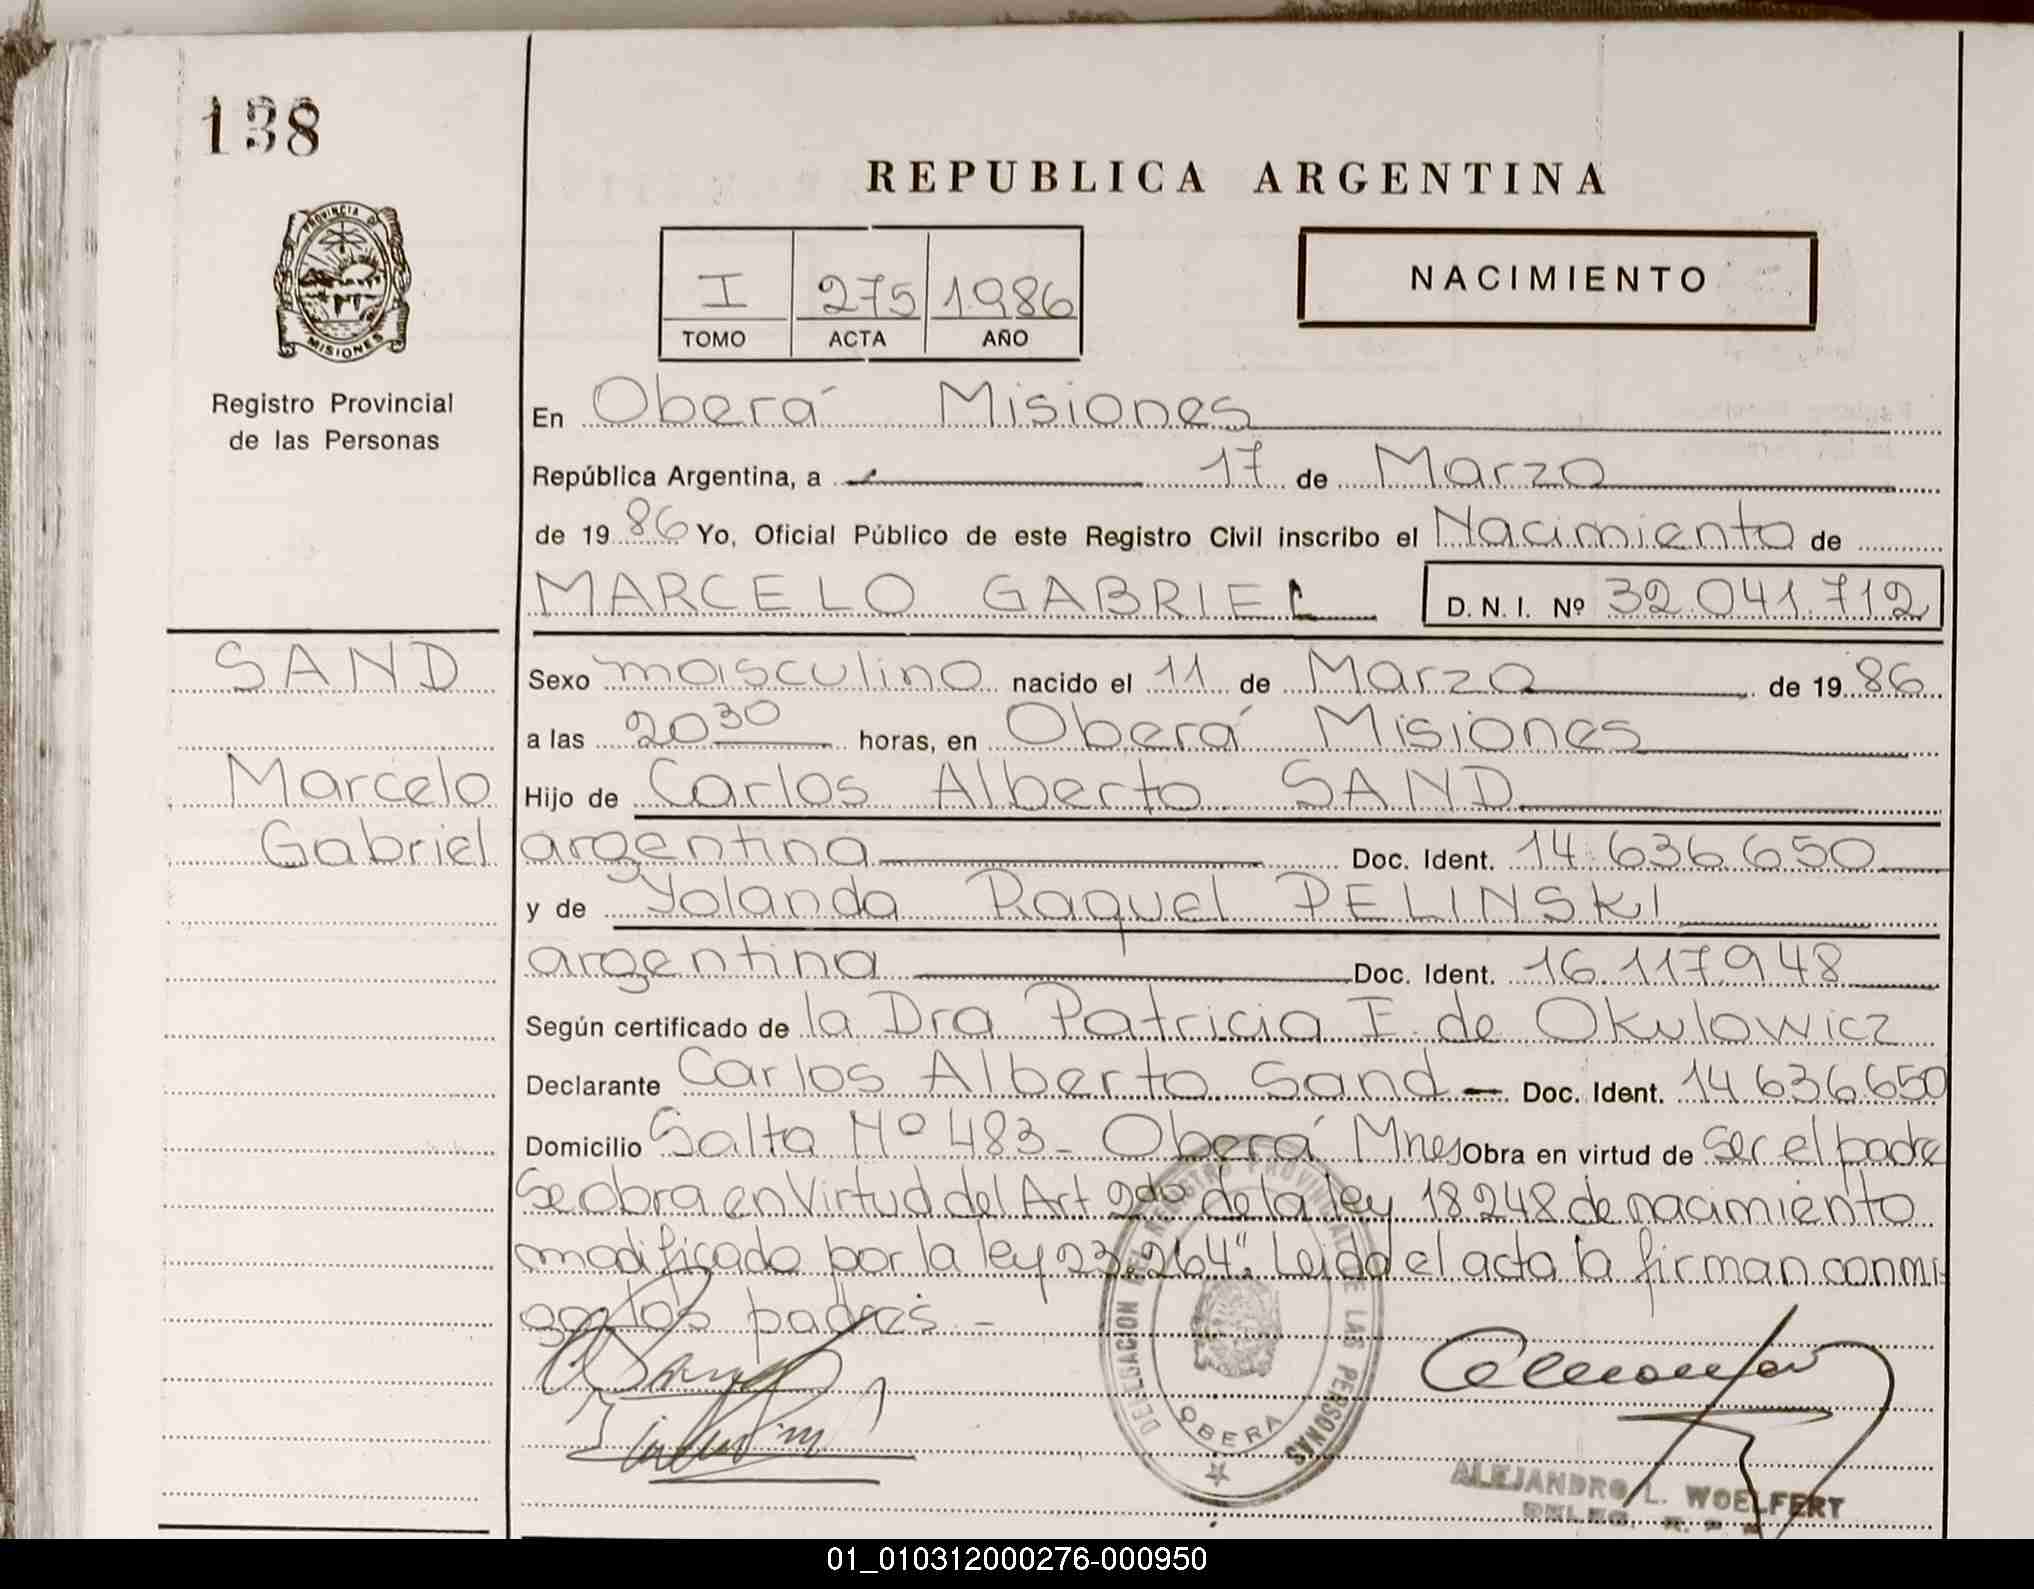 138
PROVINCIA DE
MISIONES
Registro Provincial
de las Personas
REPUBLICA ARGENTINA
I 275 1986
TOMO ACTA AÑO
NACIMIENTO
En Oberá Misiones
República Argentina, a 17 de Marzo
de 19 86 Yo, Oficial Público de este Registro Civil inscribo el Nacimiento de
MARCELO GABRIEL D. N. I. Nº 32.041.712
SAND
Marcelo
Gabriel
Sexo masculino nacido el 11 de Marzo de 19 86
a las 20 30 horas, en Oberá Misiones
Hijo de Carlos Alberto SAND
argentina Doc. Ident. 14.636.650
y de Yolanda Raquel PELINSKI
argentina Doc. Ident. 16.117.948
Según certificado de la Dra Patricia I. de Okulowicz
Declarante Carlos Alberto Sand - Doc. Ident. 14.636.650
Domicilio Salta Nº 483 - Oberá Mnes Obra en virtud de ser el padre
Se obra en Virtud del Art 2do de la ley 18.248 de nacimiento
modificado por la ley 23.264". Leida el acta la firman conmi-
go los padres -
DELEGACION DEL REGISTRO PROVINCIAL DE LAS PERSONAS
OBERA
ALEJANDRO L. WOELFERT
DELEG.
01_010312000276-000950